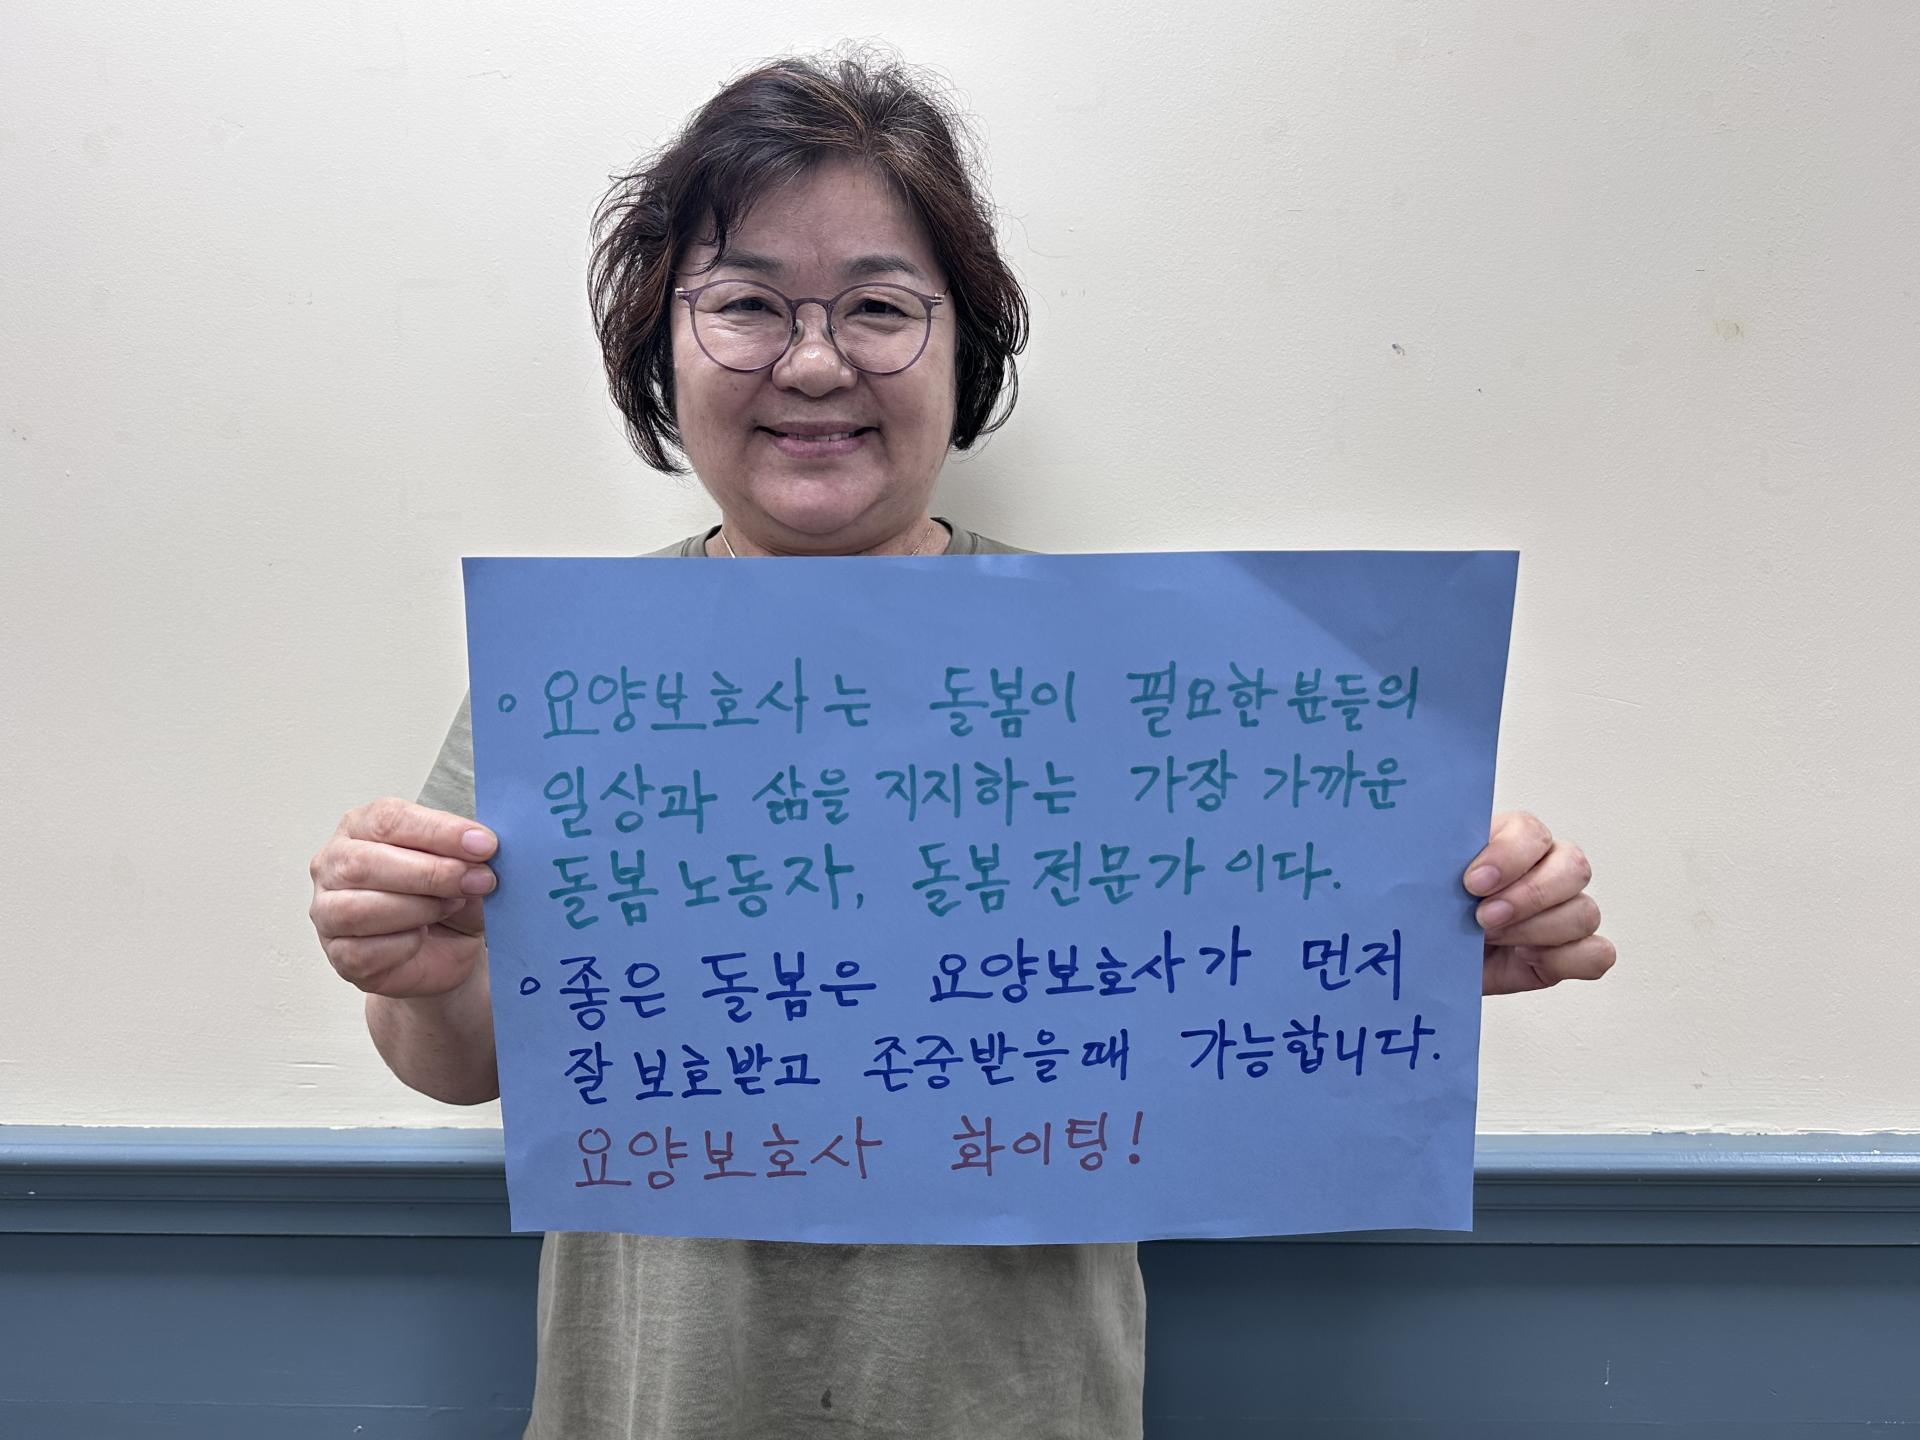 ◦ 요양보호사는 돌봄이 필요한 분들의
일상과 삶을 지지하는 가장 가까운
돌봄 노동자, 돌봄 전문가 이다.
◦ 좋은 돌봄은 요양보호사가 먼저
잘 보호받고 존중받을때 가능합니다.
요양보호사 화이팅!